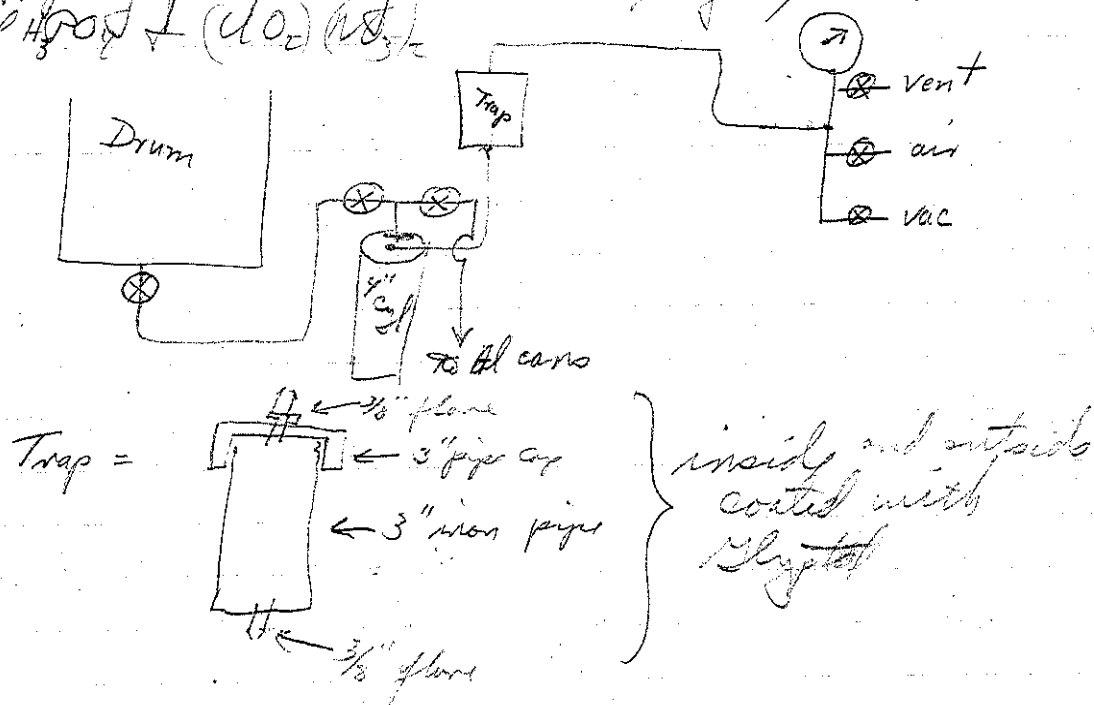 H3PO4 I (UO2)(NO3)2
Drum
Trap
vent
air
vac
4"
to Al cans
Trap =
3/8" flare
3" pipe cap
3" iron pipe
3/8" flare
inside and outside
coated with
Glyptal